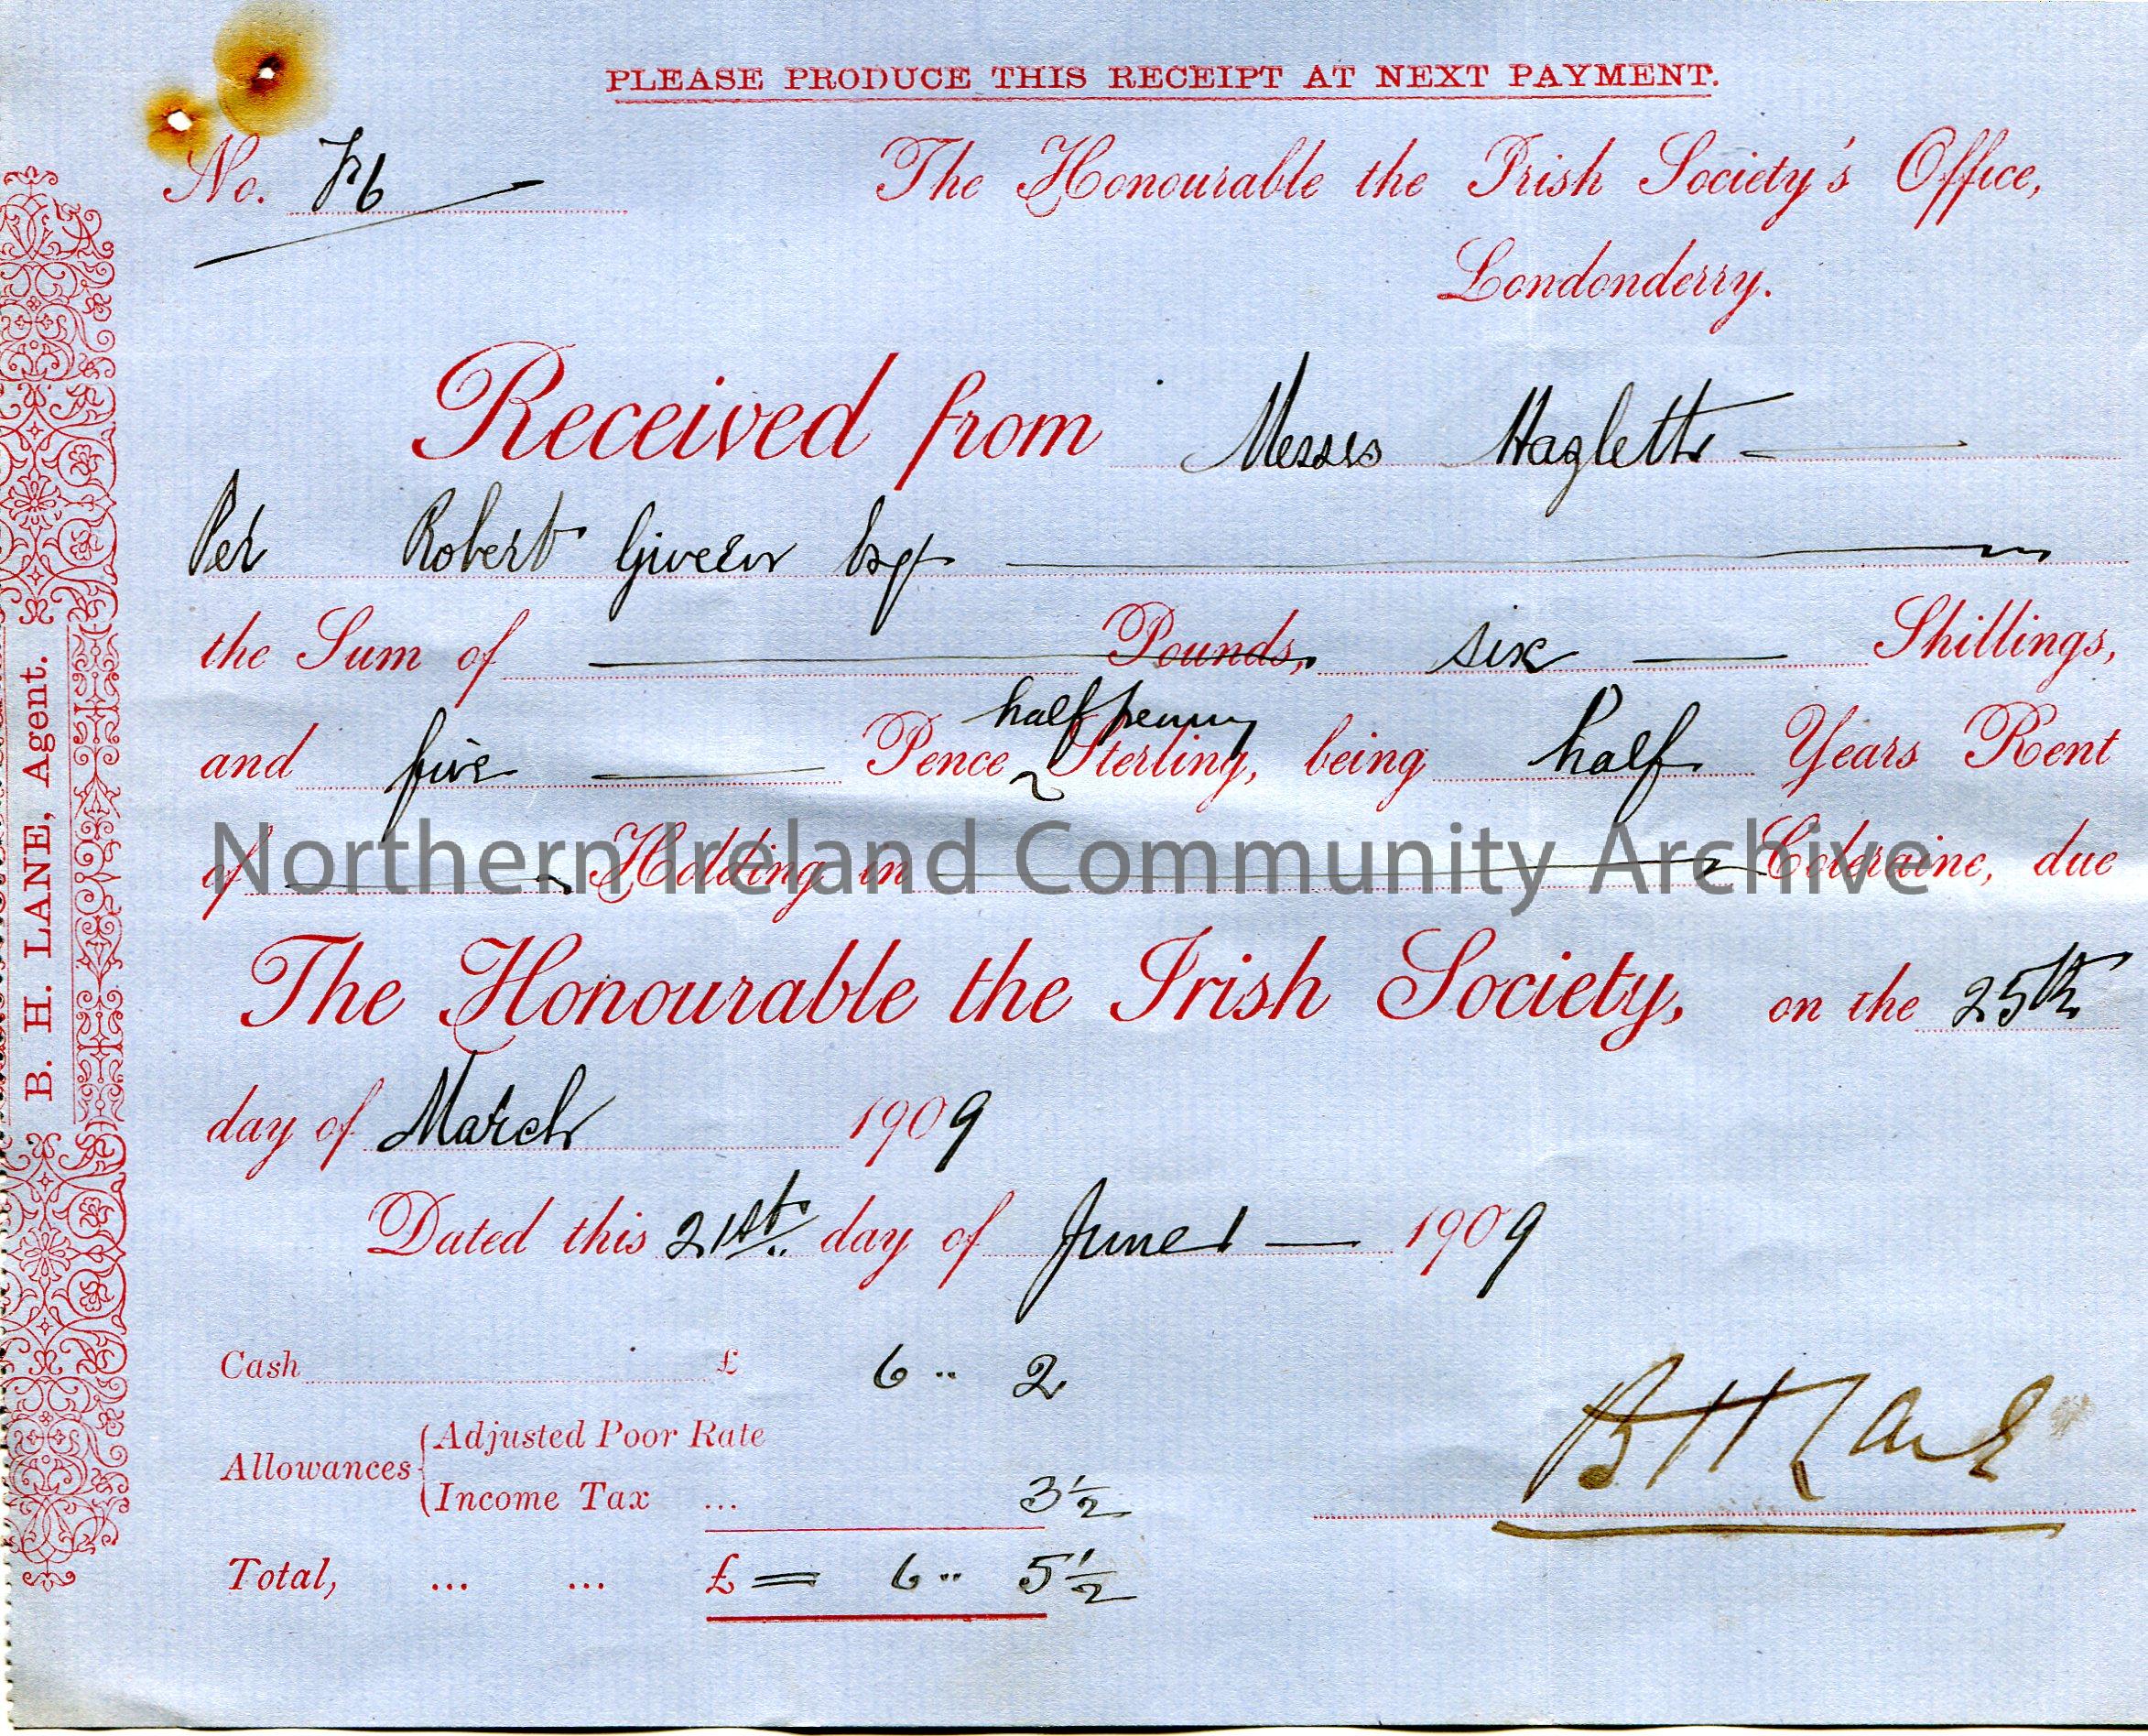 PLEASE PRODUCE THIS RECEIPT AT NEXT PAYMENT.
No.
The Honourable the Irish Society's Office,
Londonderry.
Received from Messrs Hazletts
Per Robert Given Esqr
the Sum of Pounds, six Shillings,
and five Pence halfpenny Sterling, being half Years Rent
of Holding in Coleraine, due
The Honourable the Irish Society, on the 25th
day of March 1909
Dated this 21st day of June 1909
Cash £ 6 .. 2
Allowances Adjusted Poor Rate
Income Tax ... 3½
Total, ... ... £ = 6 .. 5½
B H Lane
B. H. LANE, Agent.
Northern Ireland Community Archive